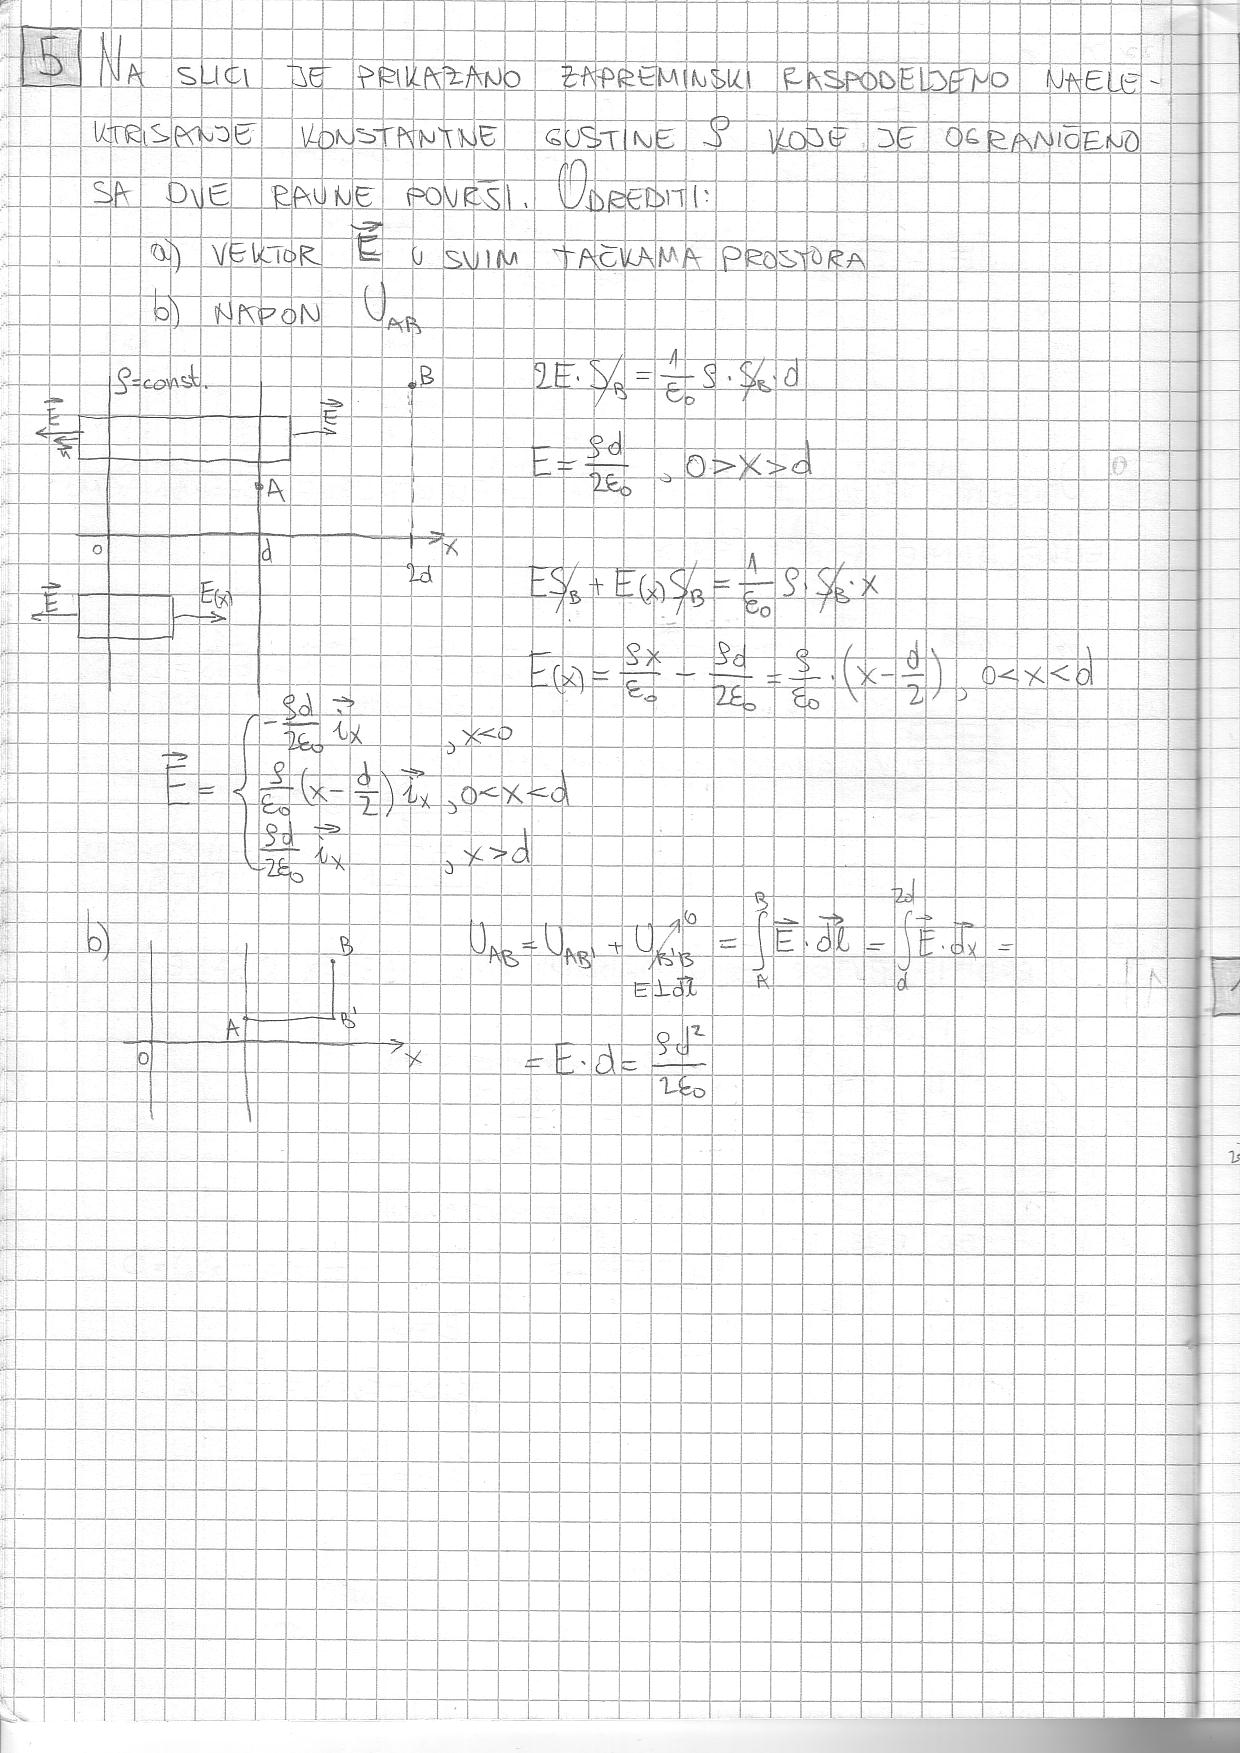 5 NA SLICI JE PRIKAZANO ZAPREMINSKI RASPODELJENO NAELE-
KTRISANJE KONSTANTNE GUSTINE ρ KOJE JE OGRANIČENO
SA DVE RAVNE POVRŠI. ODREDITI:
a) VEKTOR E⃗ U SVIM TAČKAMA PROSTORA
b) NAPON U_AB
ρ=const.
B
E⃗
E⃗
A
0
d
2d
x
E⃗
E(x)
2E·S_B = 1/ε₀ ρ·S_B·d
E = ρd/2ε₀ , 0>x>d
ES_B + E(x)S_B = 1/ε₀ ρ·S_B·x
E(x) = ρx/ε₀ - ρd/2ε₀ = ρ/ε₀·(x-d/2), 0<x<d
E⃗ = { -ρd/2ε₀ i⃗x , x<0
ρ/ε₀ (x-d/2) i⃗x , 0<x<d
ρd/2ε₀ i⃗x , x>d
b)
B
A
B'
0
x
U_AB = U_AB' + U_B'B →0 = ∫_A^B E⃗·dl⃗ = ∫_d^2d E⃗·dx⃗ =
E⊥dl⃗
= E·d = ρd²/2ε₀